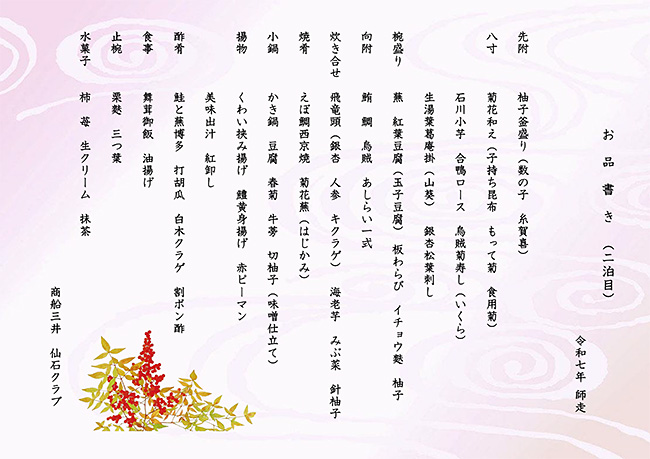 お品書き （二泊目）
令和七年 師走
先附 柚子釜盛り（数の子 糸賀喜）
八寸 菊花和え（子持ち昆布 もって菊 食用菊）
石川小芋 合鴨ロース 烏賊菊寿し（いくら）
生湯葉葛庵掛（山葵） 銀杏松葉刺し
椀盛り 蕪 紅葉豆腐（玉子豆腐） 板わらび イチョウ麩 柚子
向附 鮪 鯛 烏賊 あしらい一式
炊き合せ 飛竜頭（銀杏 人参 キクラゲ） 海老芋 みぶ菜 針柚子
焼肴 えぼ鯛西京焼 菊花蕪（はじかみ）
小鍋 かき鍋 豆腐 春菊 牛蒡 切柚子（味噌仕立て）
揚物 くわい挟み揚げ 鱧黄身揚げ 赤ピーマン
美味出汁 紅卸し
酢肴 鮭と蕪博多 打胡瓜 白木クラゲ 割ポン酢
食事 舞茸御飯 油揚げ
止椀 粟麩 三つ葉
水菓子 柿 苺 生クリーム 抹茶
商船三井 仙石クラブ